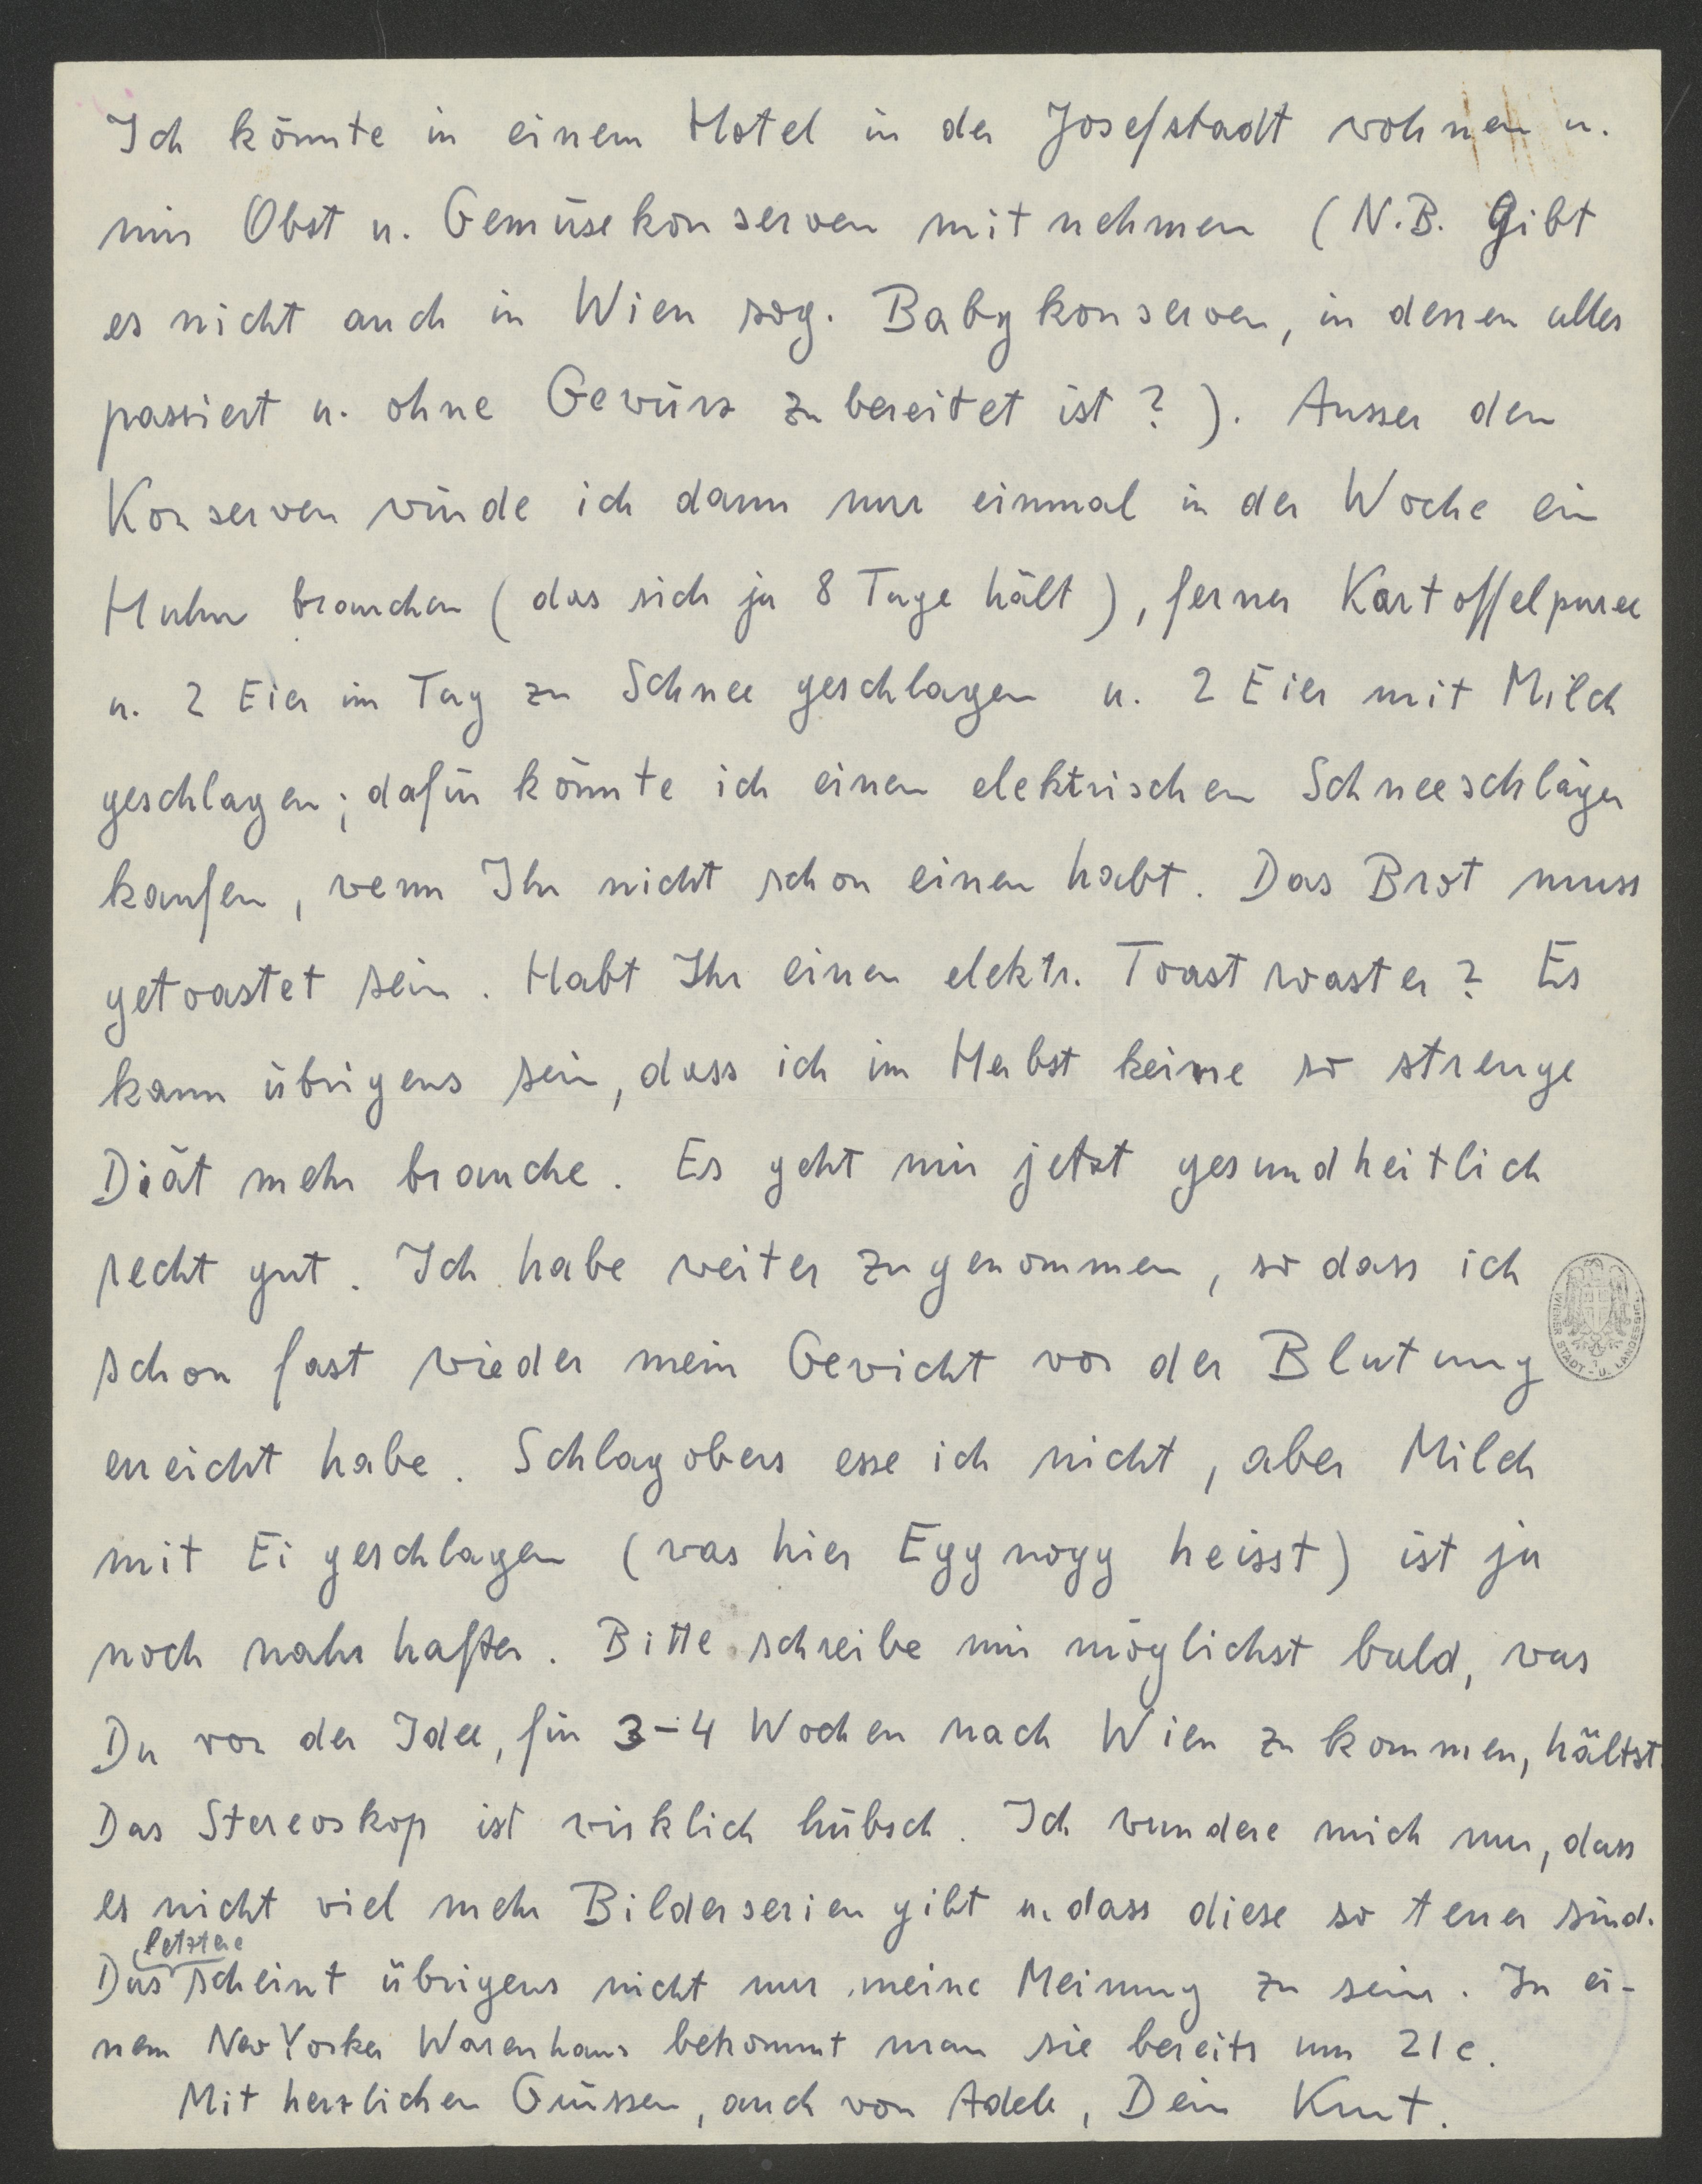 Ich könnte in einem Hotel in der Josefstadt wohnen u.
mir Obst u. Gemüsekonserven mitnehmen (N.B. Gibt
es nicht auch in Wien sog. Babykonserven, in denen alles
passiert u. ohne Gewürz zubereitet ist?). Ausser den
Konserven würde ich dann nur einmal in der Woche ein
Huhn brauchen (das sich ja 8 Tage hält), ferner Kartoffelpuree
u. 2 Eier im Tag zu Schnee geschlagen u. 2 Eier mit Milch
geschlagen; dafür könnte ich einen elektrischen Schneeschläger
kaufen, wenn Ihr nicht schon einen habt. Das Brot muss
getoastet sein. Habt Ihr einen elektr. Toastroaster? Es
kann übrigens sein, dass ich im Herbst keine so strenge
Diät mehr brauche. Es geht mir jetzt gesundheitlich
recht gut. Ich habe weiter zugenommen, so dass ich
schon fast wieder mein Gewicht vor der Blutung
erreicht habe. Schlagobers esse ich nicht, aber Milch
mit Ei geschlagen (was hier Eggnogg heisst) ist ja
noch nahrhafter. Bitte schreibe mir möglichst bald, was
Du von der Idee, für 3-4 Wochen nach Wien zu kommen, hältst.
Das Stereoskop ist wirklich hübsch. Ich wundere mich nur, dass
es nicht viel mehr Bilderserien gibt u. dass diese so teuer sind.
letztere
Das scheint übrigens nicht nur meine Meinung zu sein. In ei-
nem New Yorker Warenhaus bekommt man sie bereits um 21c.
Mit herzlichen Grüssen, auch von Adele, Dein Kurt.
WIENER STADT- U. LANDESBIBL.